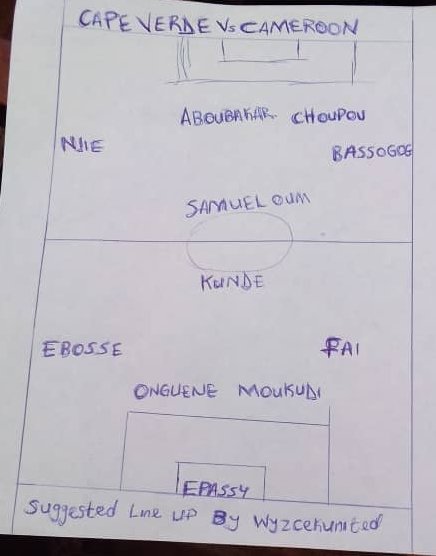 CAPE VERDE Vs CAMEROON
ABOUBAKAR CHOUPOU
NJIE
BASSOGOG
SAMUEL OUM
KUNDE
EBOSSE
FAI
ONGUENE MOUKUDI
EPASSY
Suggested Line UP By Wyzcekunited